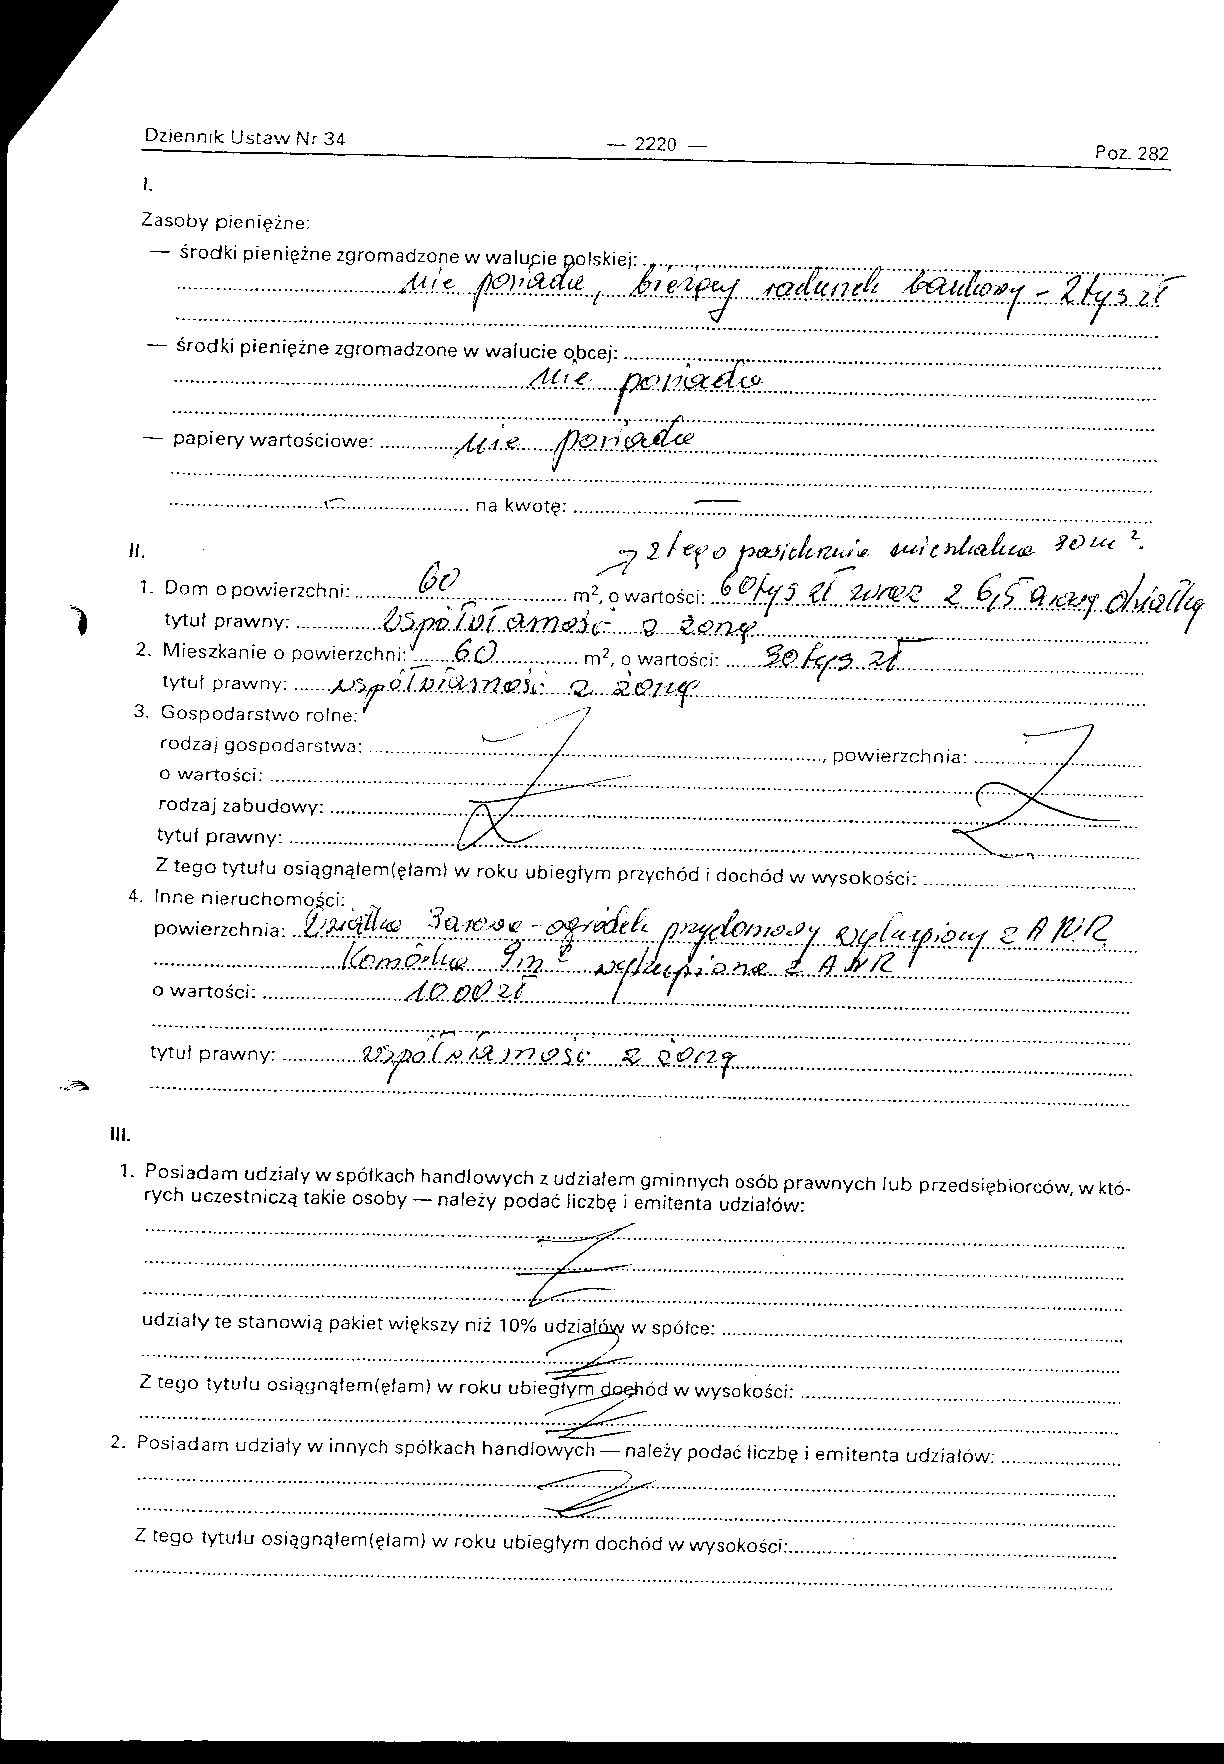 Dziennik Ustaw Nr 34 — 2220 — Poz. 282
I.
Zasoby pieniężne:
— środki pieniężne zgromadzone w walucie polskiej:
nie posiada, bieżący rachunek bankowy - 2 tys zł
— środki pieniężne zgromadzone w walucie obcej:
nie posiada
— papiery wartościowe: nie posiada
— na kwotę: —
II. z tego mieszkalna m².
1. Dom o powierzchni: 60 m², o wartości: 60 tys zł wraz z 6,5 arową działką
tytuł prawny: współwłasność z żoną
2. Mieszkanie o powierzchni: 60 m², o wartości: 30 tys zł
tytuł prawny: współwłasność z żoną
3. Gospodarstwo rolne:
rodzaj gospodarstwa: , powierzchnia:
o wartości:
rodzaj zabudowy:
tytuł prawny:
Z tego tytułu osiągnąłem(ęłam) w roku ubiegłym przychód i dochód w wysokości:
4. Inne nieruchomości:
powierzchnia: Działka 3 arowa - ogródek przydomowy wykupiony z ANR
Komórka 9m² wykupiona z ANR
o wartości: 1000 zł
tytuł prawny: współwłasność z żoną
III.
1. Posiadam udziały w spółkach handlowych z udziałem gminnych osób prawnych lub przedsiębiorców, w któ-
rych uczestniczą takie osoby — należy podać liczbę i emitenta udziałów:
udziały te stanowią pakiet większy niż 10% udziałów w spółce:
Z tego tytułu osiągnąłem(ęłam) w roku ubiegłym dochód w wysokości:
2. Posiadam udziały w innych spółkach handlowych — należy podać liczbę i emitenta udziałów:
Z tego tytułu osiągnąłem(ęłam) w roku ubiegłym dochód w wysokości: